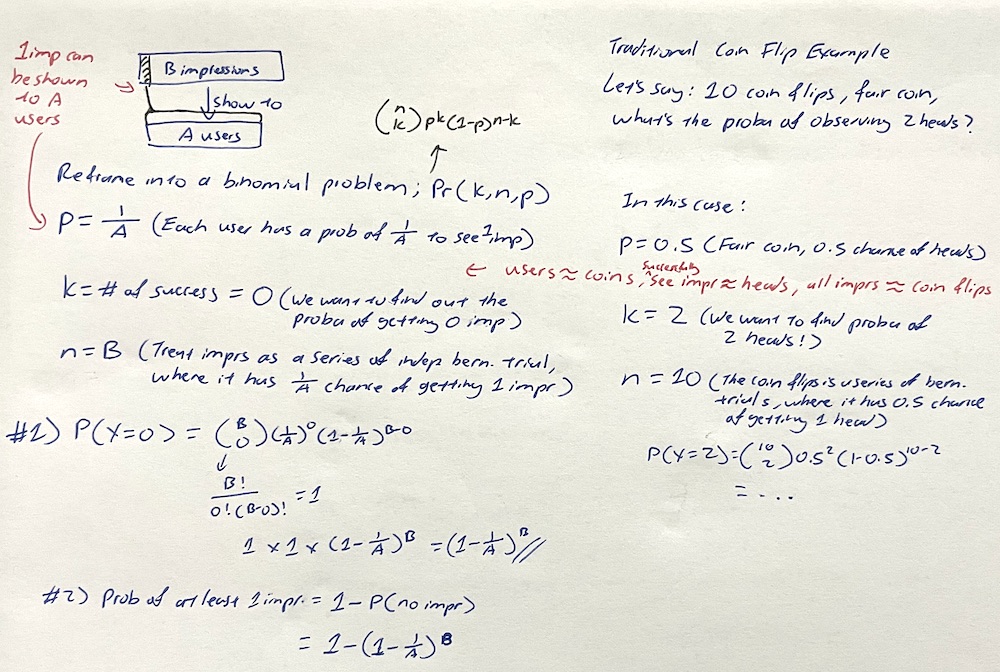 1imp can
be shown
to A
users
B impressions
show to
A users
(n k) p^k (1-p)^n-k
Reframe into a binomial problem; Pr(k,n,p)
P = 1/A (Each user has a prob of 1/A to see 1 imp)
k = # of success = 0 (we want to find out the
proba of getting 0 imp)
n = B (Treat imprs as a series of indep bern. trial,
where it has 1/A chance of getting 1 impr)
#1) P(X=0) = (B 0) (1/A)^0 (1-1/A)^B-0
B! / 0!(B-0)! = 1
1 × 1 × (1-1/A)^B = (1-1/A)^B //
#2) Prob of at least 1 impr. = 1 - P(no impr)
= 1-(1-1/A)^B
Traditional Coin Flip Example
Let's say: 10 coin flips, fair coin,
what's the proba of observing 2 heads?
In this case:
P = 0.5 (Fair coin, 0.5 chance of heads)
← users ≈ coins, successfully see impr ≈ heads, all imprs ≈ coin flips
k = 2 (we want to find proba of
2 heads!)
n = 10 (The coin flips is a series of bern.
trials, where it has 0.5 chance
of getting 1 head)
P(X=2) = (10 2) 0.5^2 (1-0.5)^10-2
= ...